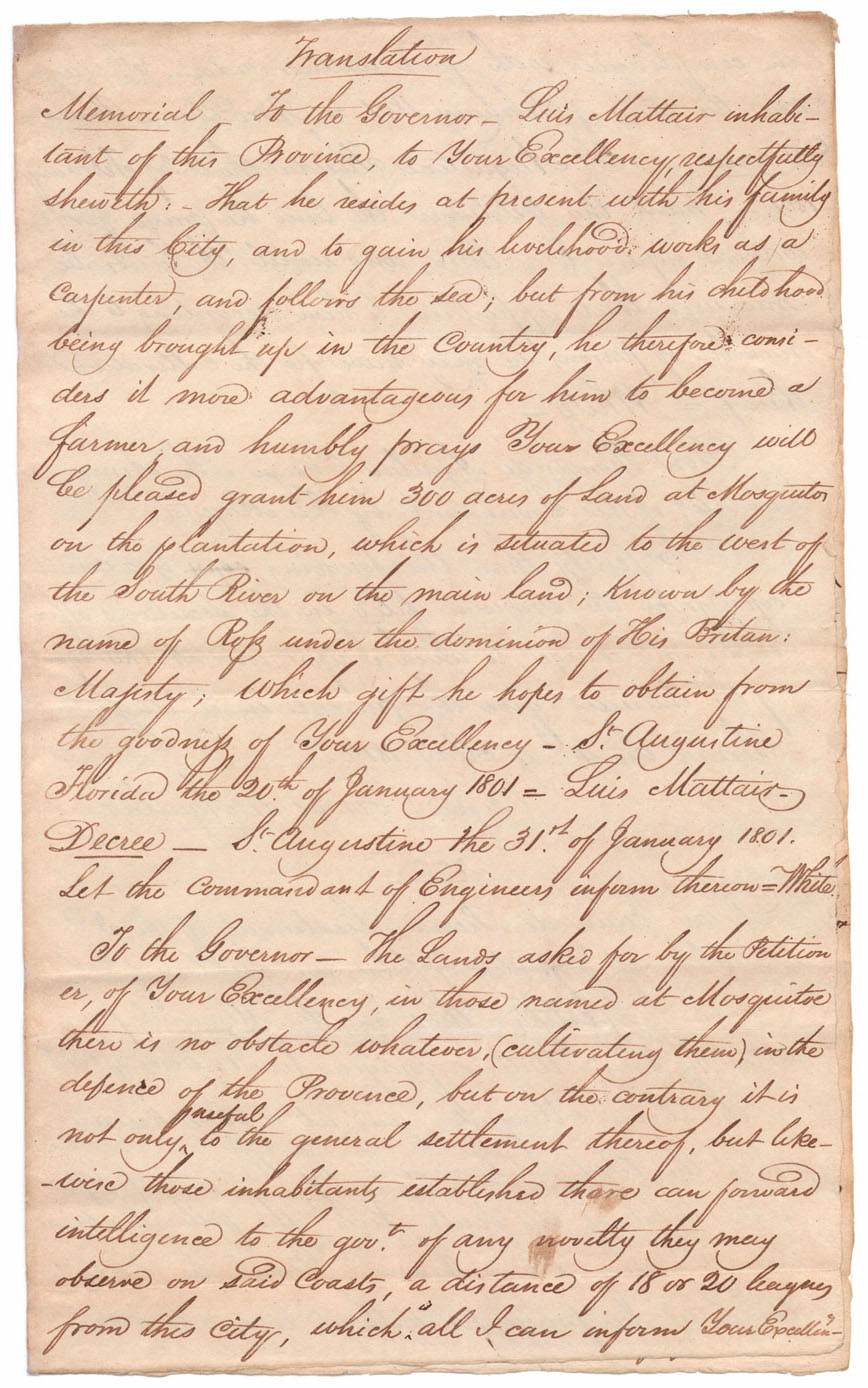 Translation
Memorial – To the Governor – Luis Mattair inhabi-
tant of this Province, to Your Excellency, respectfully
sheweth: – That he resides at present with his family
in this City, and to gain his livelihood works as a
Carpenter, and follows the sea; but from his childhood
being brought up in the Country, he therefore consi-
ders it more advantageous for him to become a
farmer, and humbly prays Your Excellency will
be pleased grant him 300 acres of Land at Mosquitos
on the plantation, which is situated to the west of
the South River on the main land; Known by the
name of Ross under the dominion of His Britan:
Majesty; which gift he hopes to obtain from
the goodness of Your Excellency – St. Augustine
Florida the 20th. of January 1801 = Luis Mattair –
Decree – St. Augustine the 31st. of January 1801.
Let the Commandant of Engineers inform thereon = White.
To the Governor – The Lands asked for by the Petition
er, of Your Excellency, in those named at Mosquitoe
there is no obstacle whatever, (cultivating them) in the
defence of the Province, but on the contrary it is
not only ^useful to the general settlement thereof, but like-
-wise those inhabitants established there can forward
intelligence to the govt. of any novelty they may
observe on said Coasts, a distance of 18 or 20 leagues
from this City, which "all I can inform Your Excellen-